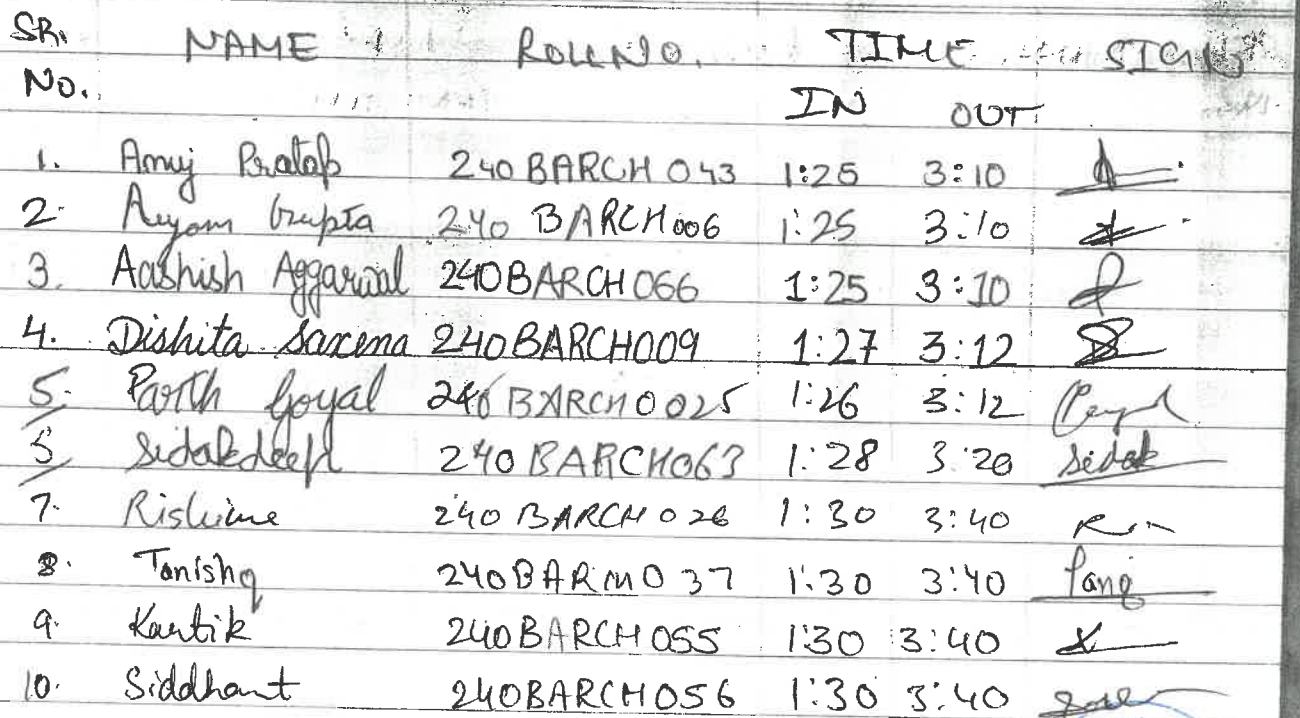 SR. NAME ROLLNO. TIME SIGN
No. IN OUT
1. Anuj Pratap 240BARCH043 1:25 3:10
2. Gupta 240 BARCH006 1:25 3:10
3. Aashish Aggarwal 240BARCH066 1:25 3:10
4. Dishita Saxena 240BARCH009 1:27 3:12
5. Parth Goyal 240BARCH0025 1:26 3:12
5 Sidakdeep 240BARCH063 1:28 3:20 Sidak
7. 240BARCH026 1:30 3:40
8. Tanishq 240BARCH037 1:30 3:40 Tanq
9. Kartik 240BARCH055 1:30 3:40
10. Siddhant 240BARCH056 1:30 3:40